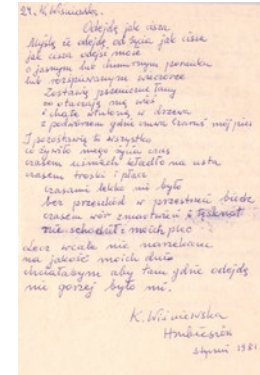 24. K. Wiśniewska.
Odejdę jak cisza.
Myślę że odejdę od życia jak cisza
jak cisza odejść może
o jasnym lub chmurnym poranku
lub rozśpiewanym wieczorze
Zostawię pszeniczne łany
co otaczają mą wieś
i chatę wtuloną w drzewa
z podwórzem gdzie mój pies
I pozostawię to wszystko
co żywiło mego życia czas
czasem uśmiech kładło na usta
czasem troski i płacz
czasami lekko mi było
bez przeszkód w przestrzeń biedz
czasem wór zmartwień i tęsknot
nie schodził z moich plec
lecz wcale nie narzekam
na jakość moich dni
chciałabym aby tam gdzie odejdę
nie gorzej było mi.
K. Wiśniewska
styczeń 1981